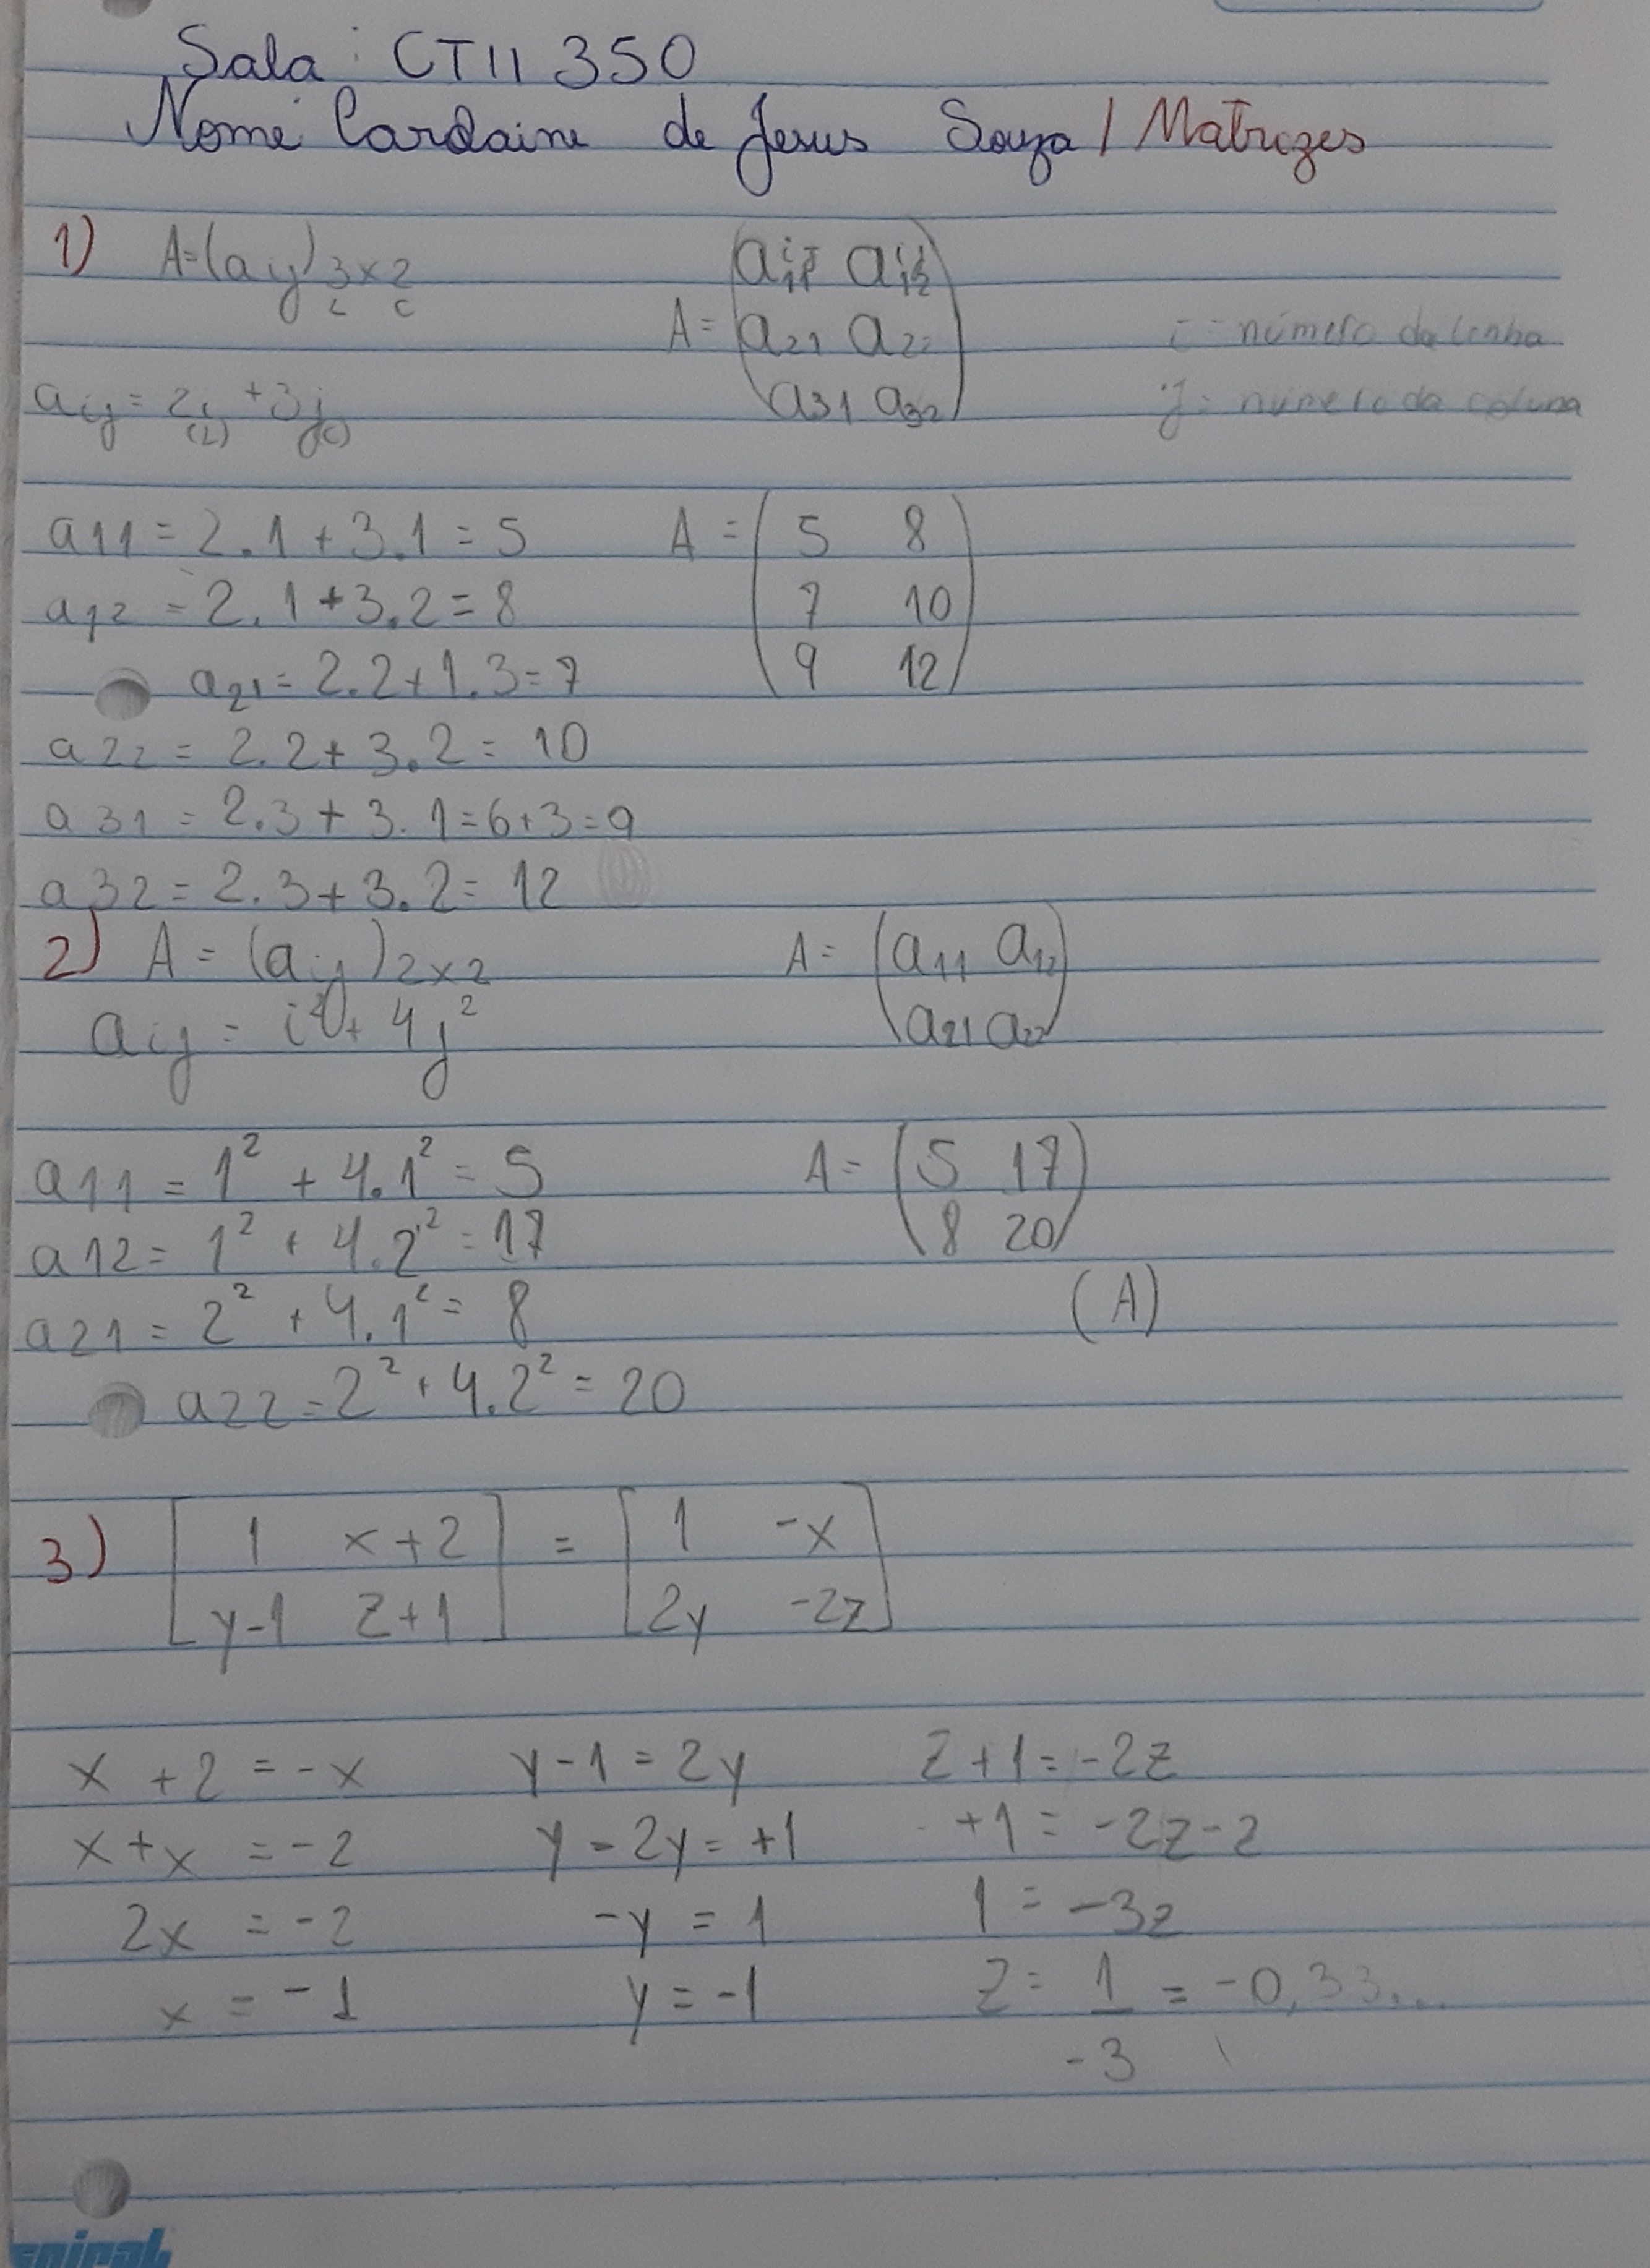 Sala: CTII 350
Nome Carolaine de Jesus Souza / Matrizes
1) A=(aij)3x2
L C
A= (a11 a12
a21 a22
a31 a32)
i = número da linha
j = número da coluna
aij = 2i + 3j
(L) (C)
a11 = 2.1 + 3.1 = 5
a12 = 2.1 + 3.2 = 8
a21 = 2.2 + 1.3 = 7
a22 = 2.2 + 3.2 = 10
a31 = 2.3 + 3.1 = 6+3 = 9
a32 = 2.3 + 3.2 = 12
A = (5 8
7 10
9 12)
2) A = (aij)2x2
aij = i² + 4j²
A = (a11 a12
a21 a22)
a11 = 1² + 4.1² = 5
a12 = 1² + 4.2² = 17
a21 = 2² + 4.1² = 8
a22 = 2² + 4.2² = 20
A = (5 17
8 20)
(A)
3) [1 x+2 = [1 -x
y-1 z+1] 2y -2z]
x + 2 = -x
x + x = -2
2x = -2
x = -1
y - 1 = 2y
y - 2y = +1
-y = 1
y = -1
z + 1 = -2z
+1 = -2z-z
1 = -3z
z = 1 = -0,33...
-3
spiral